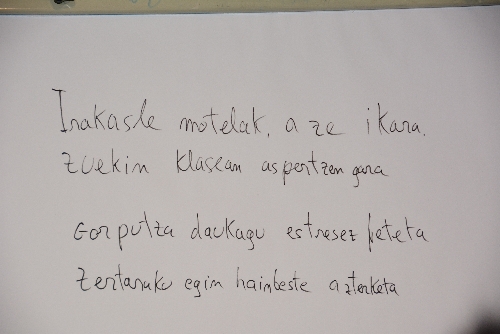 Irakasle motelak, a ze ikara.
Zuekin klasean aspertzen gara
Gorputza daukagu estresez beteta
Zertarako egin hainbeste azterketa